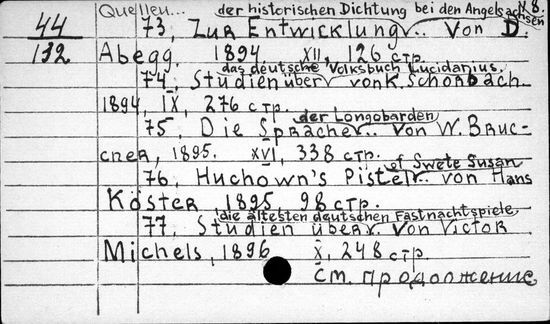 Quellen... der historischen Dichtung bei den Angelsachsen N8.
44 73, Zur Entwicklung.. Von D.
132 Abegg, 1894 XII, 126 стр.
das deutsche Volksbuch Lucidarius.
74, Studien über von K. Schorbach
1894, IX, 276 стр.
der Longobarden
75, Die Sprache.. von W. Bruc-
cner, 1895. XVI, 338 стр.
of Swete Susan
76, Huchown's Pistel.. von Hans
Köster, 1895, 98 стр.
die ältesten deutschen Fastnachtspiele
77. Studien über.. von Victor
Michels, 1896 X, 248 стр.
См. продолжение